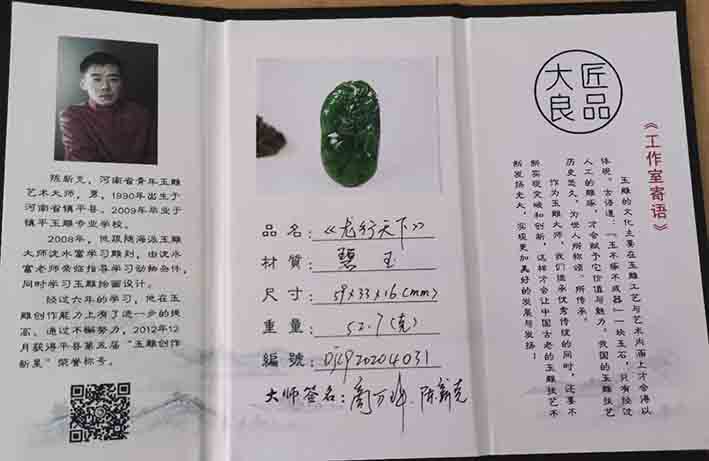 陈新克，河南省青年玉雕
艺术大师，男，1990年出生于
河南省镇平县。2009年毕业于
镇平玉雕专业学校。
2008年，他跟随海派玉雕
大师沈水富学习雕刻，由沈水
富老师亲临指导学习动物杂件，
同时学习玉雕绘画设计。
经过六年的学习，他在玉
雕创作能力上有了进一步的提
高。通过不懈努力，2012年12
月获得平县第五届“玉雕创作
新星”荣誉称号。
品名：《龙行天下》
材質：碧玉
尺寸：59×33×16(mm)
重量：52.7(克)
編號：
大师签名：陈新克
大匠
良品
《工作室寄语》
玉雕的文化主要在玉雕工艺与艺术内涵上才会得以
体现。古语道：“玉不琢不成器”一块玉石，只有经过
人工的雕琢，才会赋予它价值与魅力。我国的玉雕技艺
历史悠久，为世人所称颂、所传承。
作为玉雕大师，我们继承优秀传统的同时，还要不
断实现突破和创新，这样才会让中国古老的玉雕技艺不
断发扬光大，实现更加美好的发展与发扬！